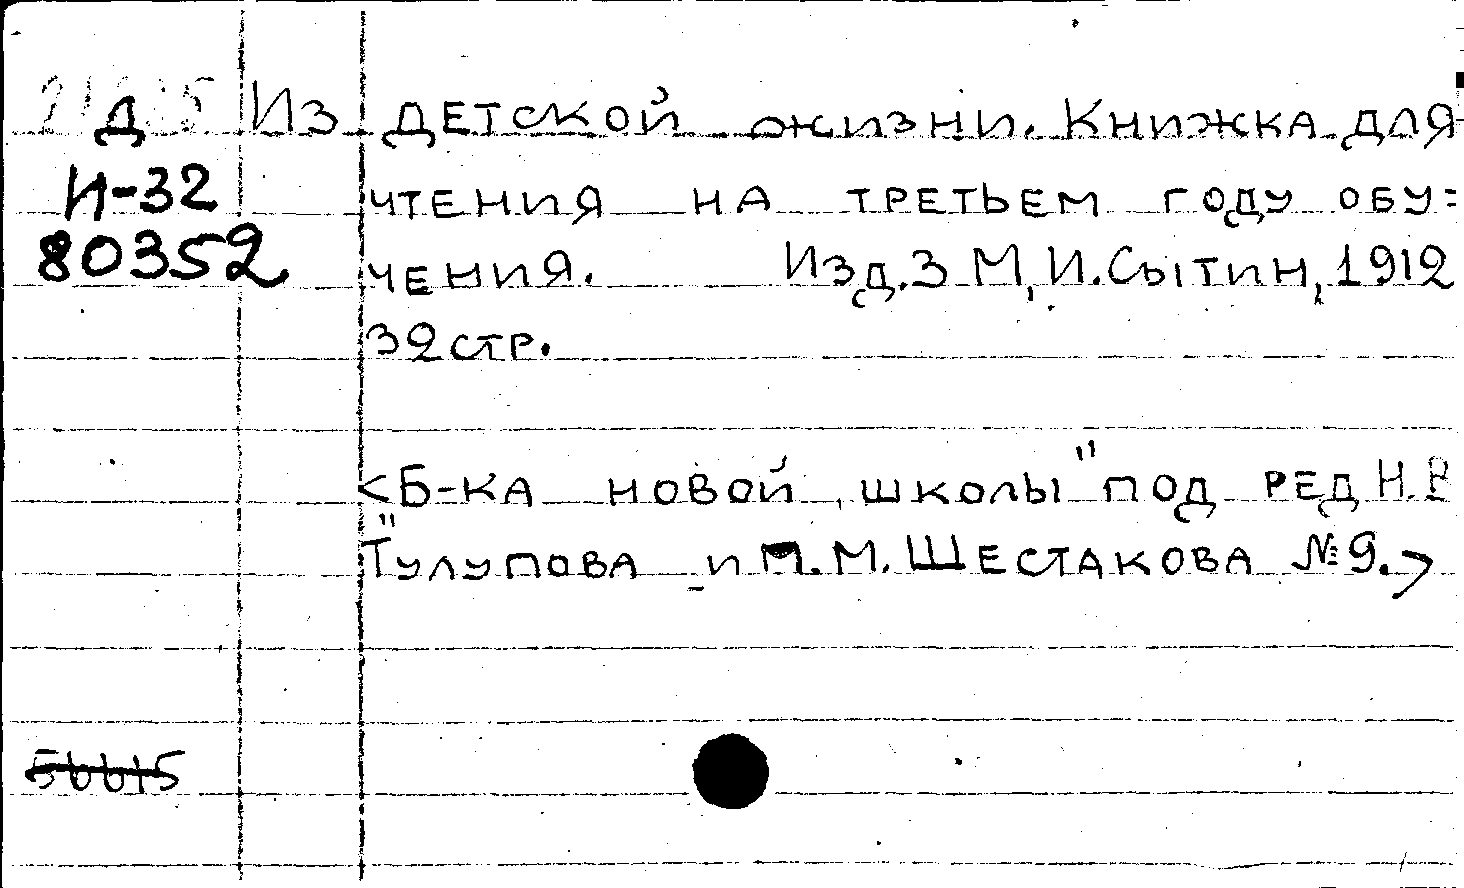 Д Из детской жизни. Книжка для
И-32 чтения на третьем году обу=
80352 чения. Изд. 3 М, И. Сытин, 1912
32 стр.
<Б-ка новой школы" под ред Н. В
"Тулупова и П. М. Шестакова № 9.>